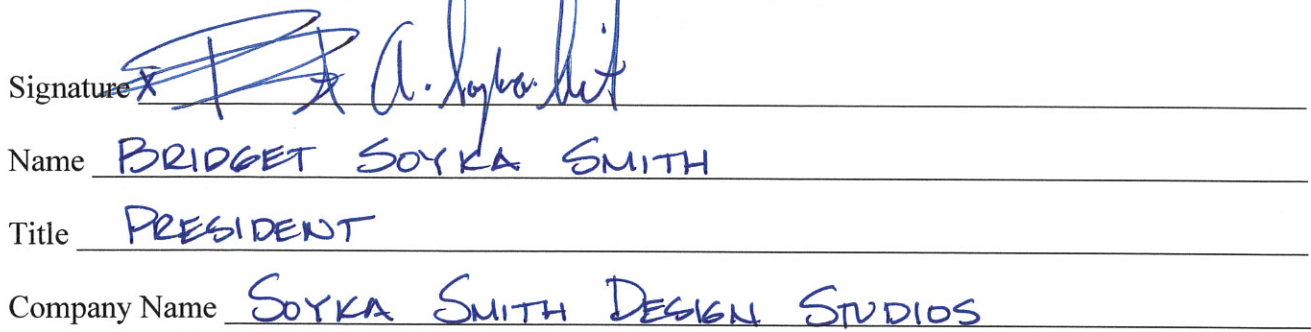 Signature x A. Soyka Smit
Name BRIDGET SOYKA SMITH
Title PRESIDENT
Company Name SOYKA SMITH DESIGN STUDIOS